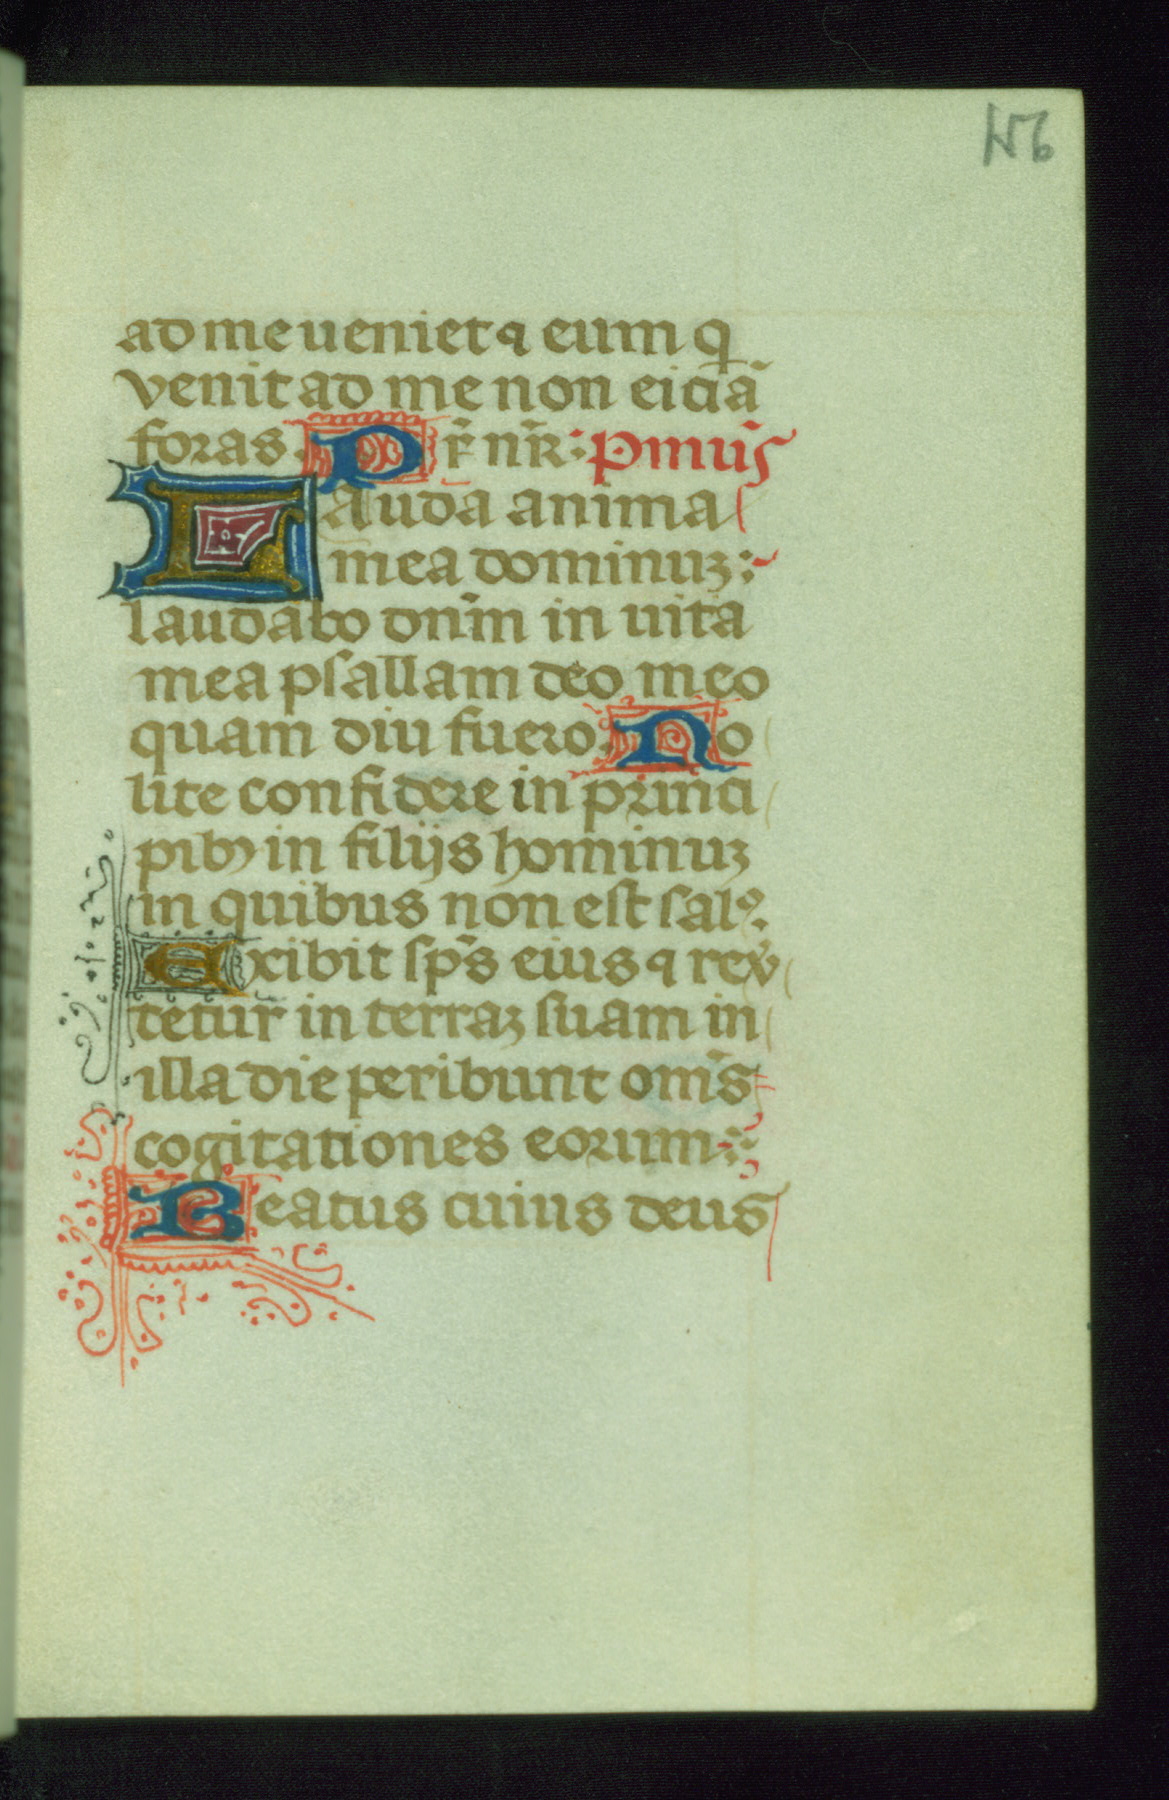 156
ad me ueniet ⁊ eum q
venit ad me non eiciã
foras. Pr̃ nr̃: Pmus̃
Lauda anima
mea dominuꝫ:
laudabo dnm̃ in uita
mea psallam deo meo
quam diu fuero. No
lite confidere in princi
pibꝰ in filijs hominuꝫ
in quibus non est salꝰ.
Exibit sp̃s eius ⁊ reṽ
tetur in terraꝫ suam in
illa die peribunt om̃s
cogitationes eorum:
Beatus cuius deus